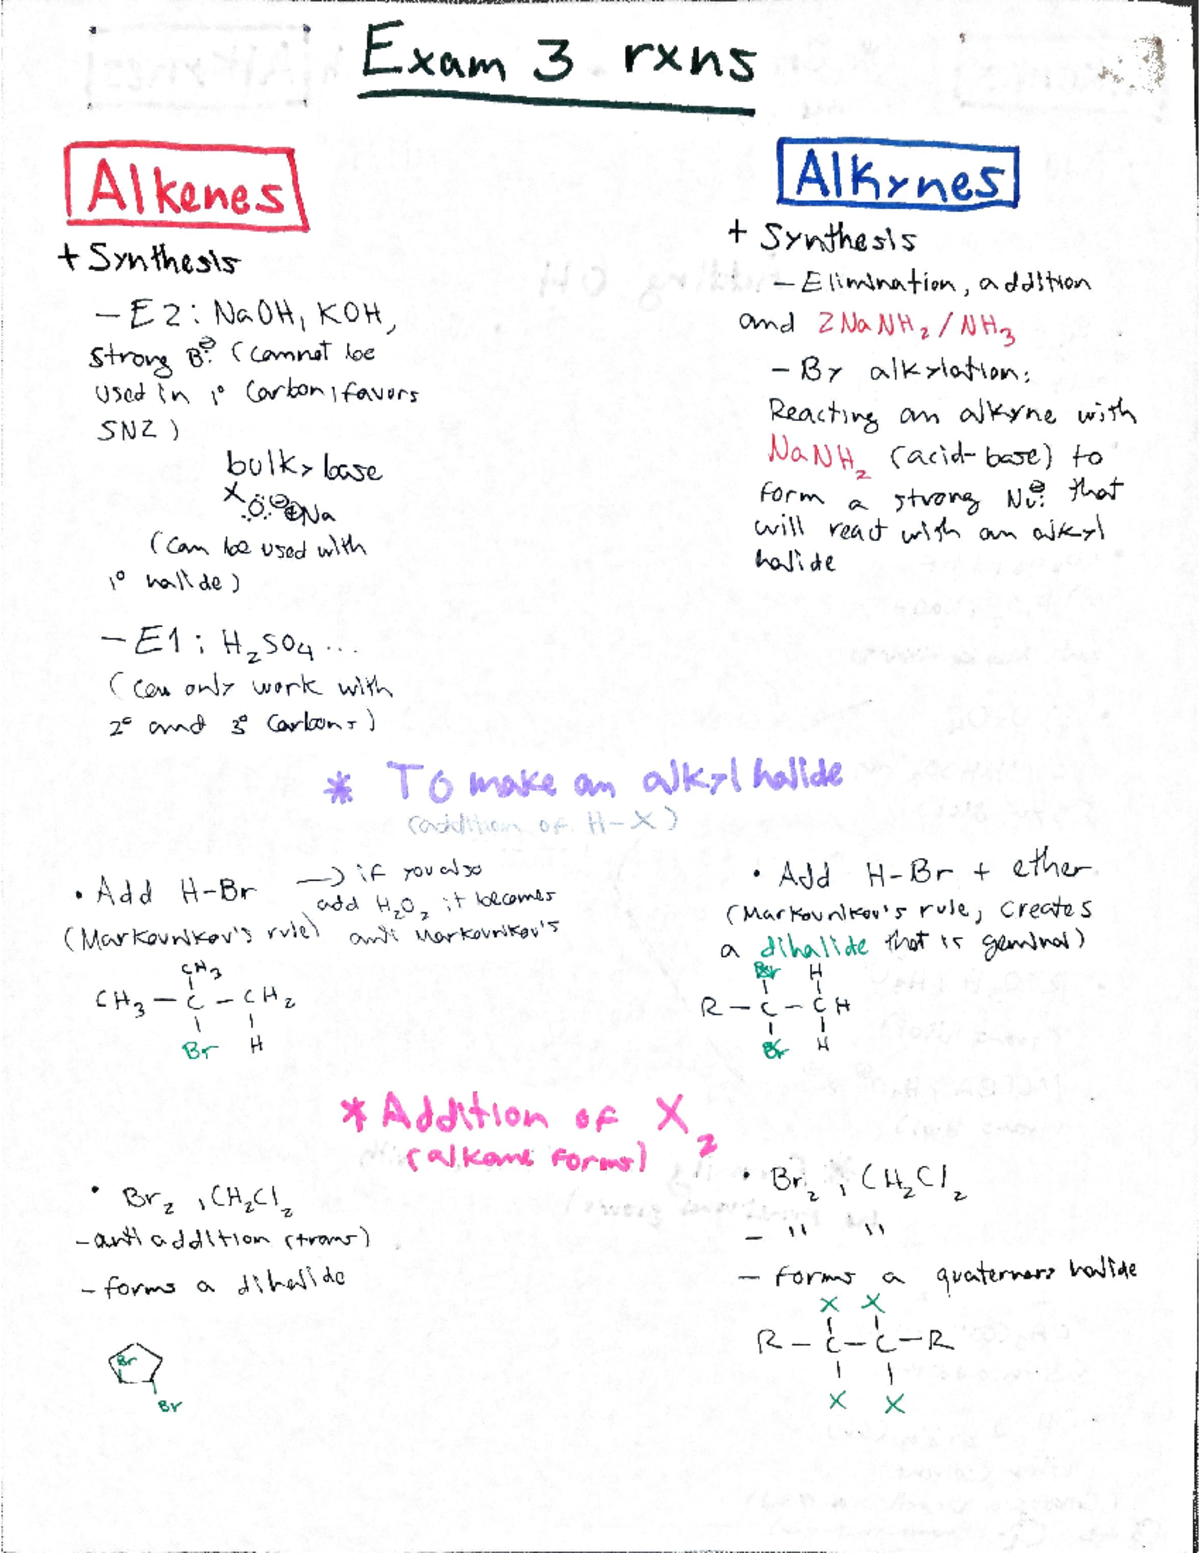 Exam 3 rxns
Alkenes
+ Synthesis
- E2: NaOH, KOH,
strong B:⊖ (cannot be
used in 1° carbon, favors
SN2)
bulky base
:Ö:⊖ ⊕Na
(can be used with
1° halide)
- E1: H2SO4 ...
(can only work with
2° and 3° carbons)
Alkynes
+ Synthesis
- Elimination, addition
and 2NaNH2/NH3
- By alkylation:
Reacting an alkyne with
NaNH2 (acid-base) to
form a strong Nu:⊖ that
will react with an alkyl
halide
* To make an alkyl halide
(addition of H-X)
• Add H-Br → if you also
add H2O2 it becomes
(Markovnikov's rule) anti Markovnikov's
CH3
CH3 - C - CH2
Br H
• Add H-Br + ether
(Markovnikov's rule, creates
a dihalide that is geminal)
Br H
R - C - CH
Br H
* Addition of X2
(alkane forms)
• Br2, CH2Cl2
- anti addition (trans)
- forms a dihalide
Br
Br
• Br2, CH2Cl2
- " "
- forms a quaternary halide
X X
R - C - C - R
X X